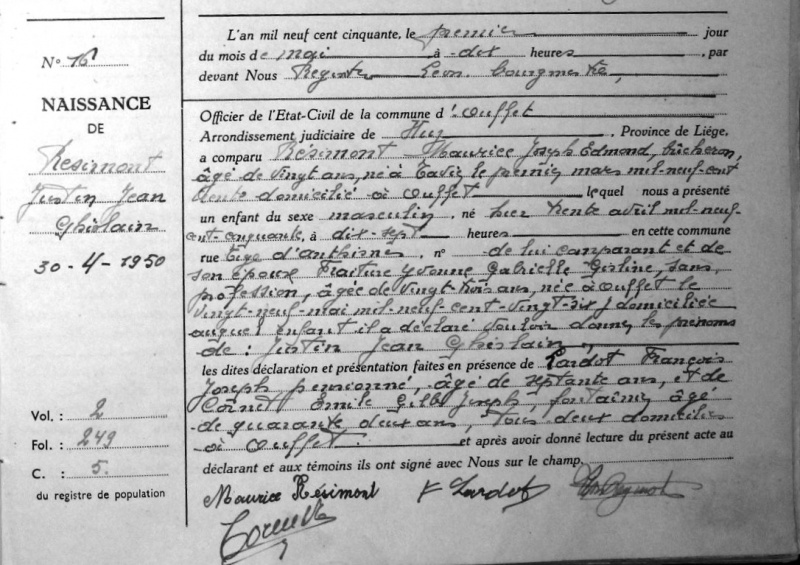 N° 16
NAISSANCE
DE
Résimont
Justin Jean
Ghislain
30-4-1950
Vol. : 2
Fol. : 249
C. : 5.
du registre de population
L'an mil neuf cent cinquante, le premier jour
du mois de mai à dix heures, par
devant Nous Léon, bourgmestre,
Officier de l'Etat-Civil de la commune d'Ouffet
Arrondissement judiciaire de Huy, Province de Liége,
a comparu Résimont Maurice Joseph Edmond, bûcheron,
âgé de vingt ans, né à Tavier, le premier mars mil-neuf-cent
trente domicilié à Ouffet lequel nous a présenté
un enfant du sexe masculin, né hier trente avril mil-neuf-
cent-cinquante, à dix-sept heures en cette commune
rue Tige d'anthisnes, n° de lui comparant et de
son épouse Fraiture Yvonne Gabrielle Gisline, sans
profession, âgée de vingt-trois ans, née à Ouffet le
vingt-neuf-mai mil-neuf-cent-vingt-six, domiciliée
auquel enfant il a déclaré vouloir donner les prénoms
de : Justin Jean Ghislain,
les dites déclaration et présentation faites en présence de Lardot François
Joseph pensionné, âgé de septante ans, et de
Cornet Emile Joseph, âgé
de quarante deux ans, tous deux domiciliés
à Ouffet. et après avoir donné lecture du présent acte au
déclarant et aux témoins ils ont signé avec Nous sur le champ,
Maurice Résimont F Lardot